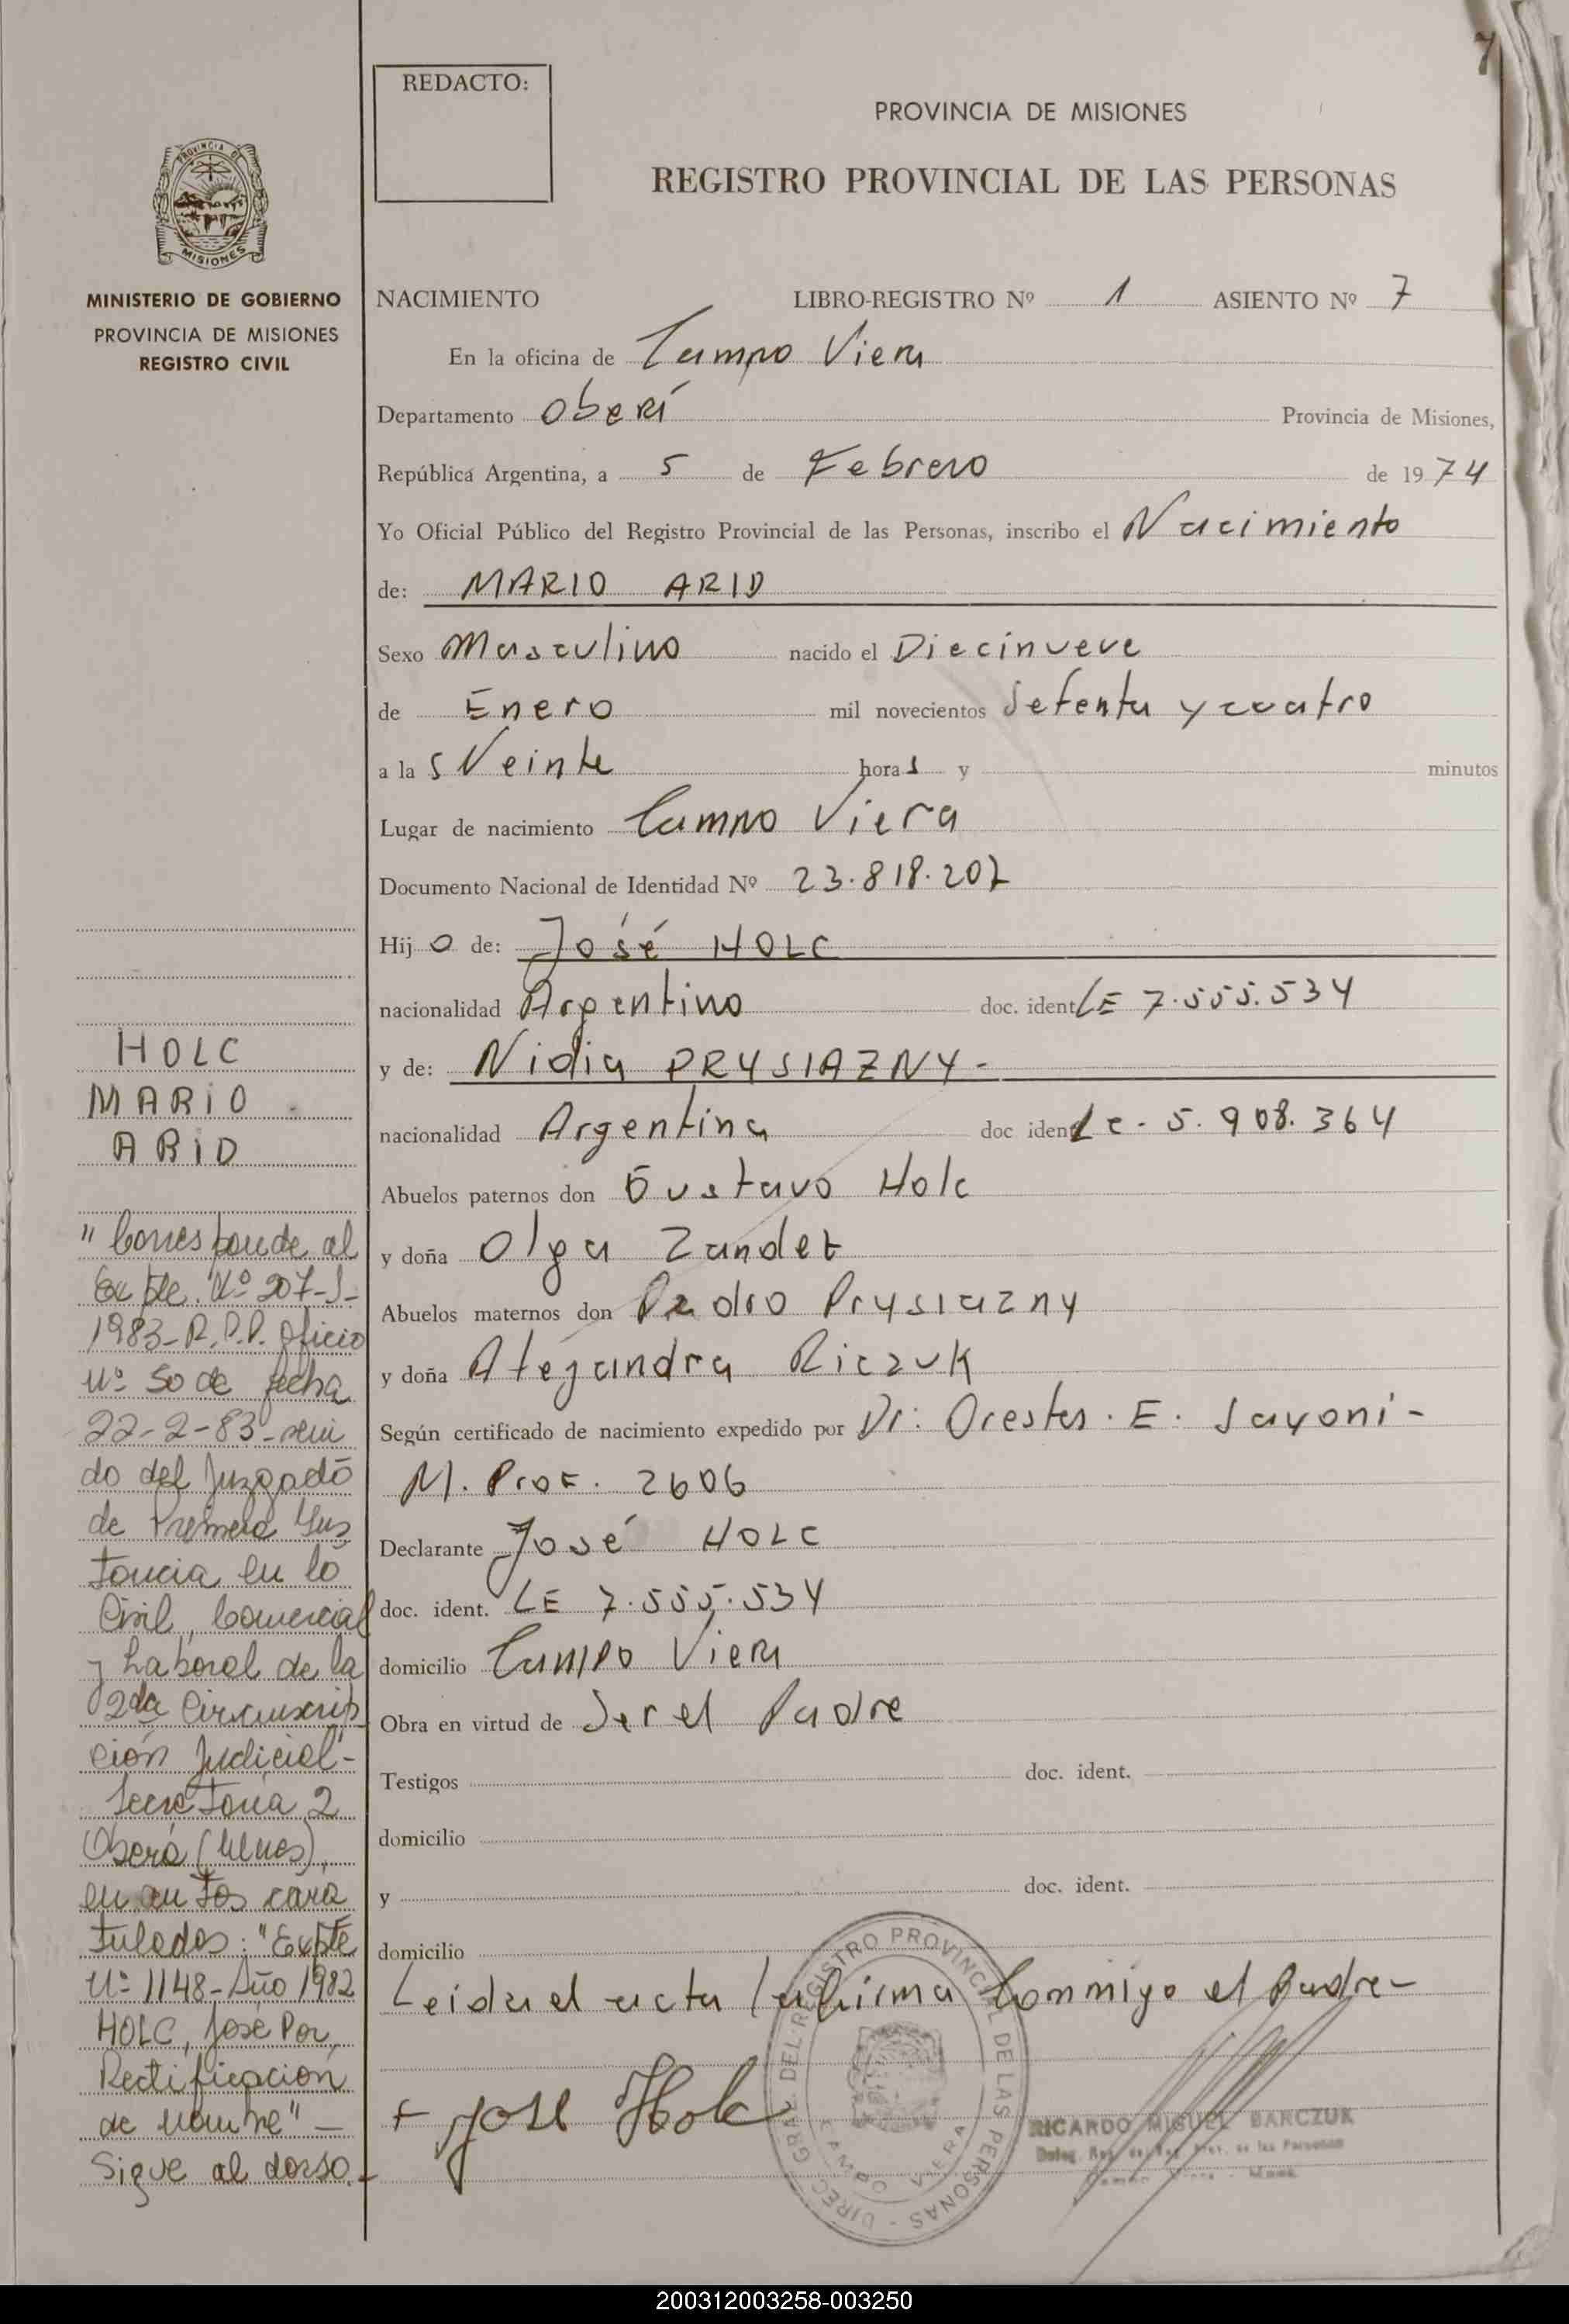 7
REDACTO:
PROVINCIA DE MISIONES
REGISTRO PROVINCIAL DE LAS PERSONAS
PROVINCIA DE
MISIONES
MINISTERIO DE GOBIERNO
PROVINCIA DE MISIONES
REGISTRO CIVIL
NACIMIENTO LIBRO-REGISTRO Nº 1 ASIENTO Nº 7
En la oficina de Campo Viera
Departamento Oberá Provincia de Misiones,
República Argentina, a 5 de Febrero de 1974
Yo Oficial Público del Registro Provincial de las Personas, inscribo el Nacimiento
de: MARIO ARID
Sexo Masculino nacido el Diecinueve
de Enero mil novecientos Setenta y cuatro
a las Veinte horas y minutos
Lugar de nacimiento Campo Viera
Documento Nacional de Identidad Nº 23.818.207
Hijo de: José HOLC
nacionalidad Argentino doc. ident LE 7.555.534
y de: Nidia PRYSIAZNY-
nacionalidad Argentina doc ident Lc. 5.908.364
Abuelos paternos don Gustavo Holc
y doña Olga Zandet
Abuelos maternos don Pedro Prysiazny
y doña Alejandra Riczuk
Según certificado de nacimiento expedido por Dr: Orestes. E. Savoni-
M. Prof. 2606
Declarante José HOLC
doc. ident. LE 7.555.534
domicilio Campo Viera
Obra en virtud de Ser el Padre
Testigos doc. ident.
domicilio
y doc. ident.
domicilio
Leida el acta la firma Conmigo el Padre-
+ José Holc
DIREC. GRAL. DEL REGISTRO PROVINCIAL DE LAS PERSONAS -
CAMPO VIERA
RICARDO MIGUEL BARCZUK
HOLC
MARIO
ARID
"Corresponde al
Expte. Nº 207-S-
1983-R.P.P. Oficio
Nº 50 de fecha
22-2-83-reci
do del Juzgado
de Primera Ins
tancia en lo
Civil, Comercial
y Laboral de la
2da Circunscrip
ción Judicial-
Secretaria 2
Oberá (Mnes),
en autos cara
tulados: "Expte
Nº 1148-Año 1982
HOLC, José Por
Rectificación
de Nombre"-
Sigue al dorso.-
200312003258-003250